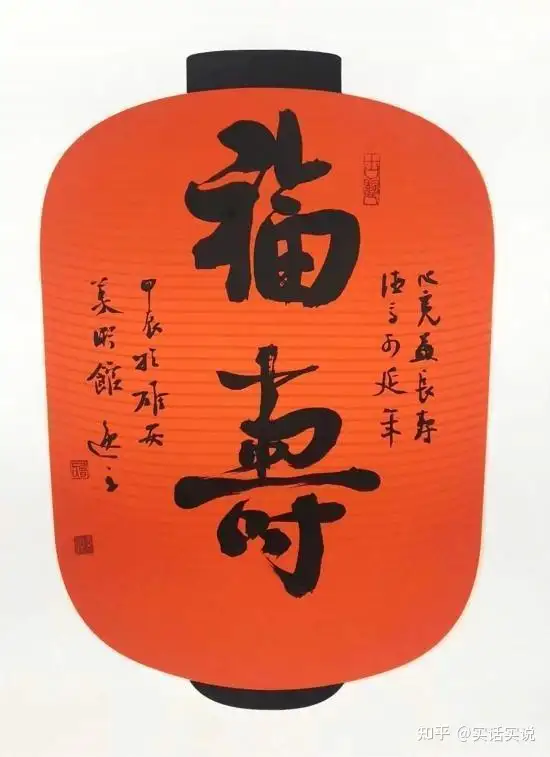 福壽
心寬益長壽
德高可延年
甲辰於雄安
美照館逸之
知乎 @实话实说